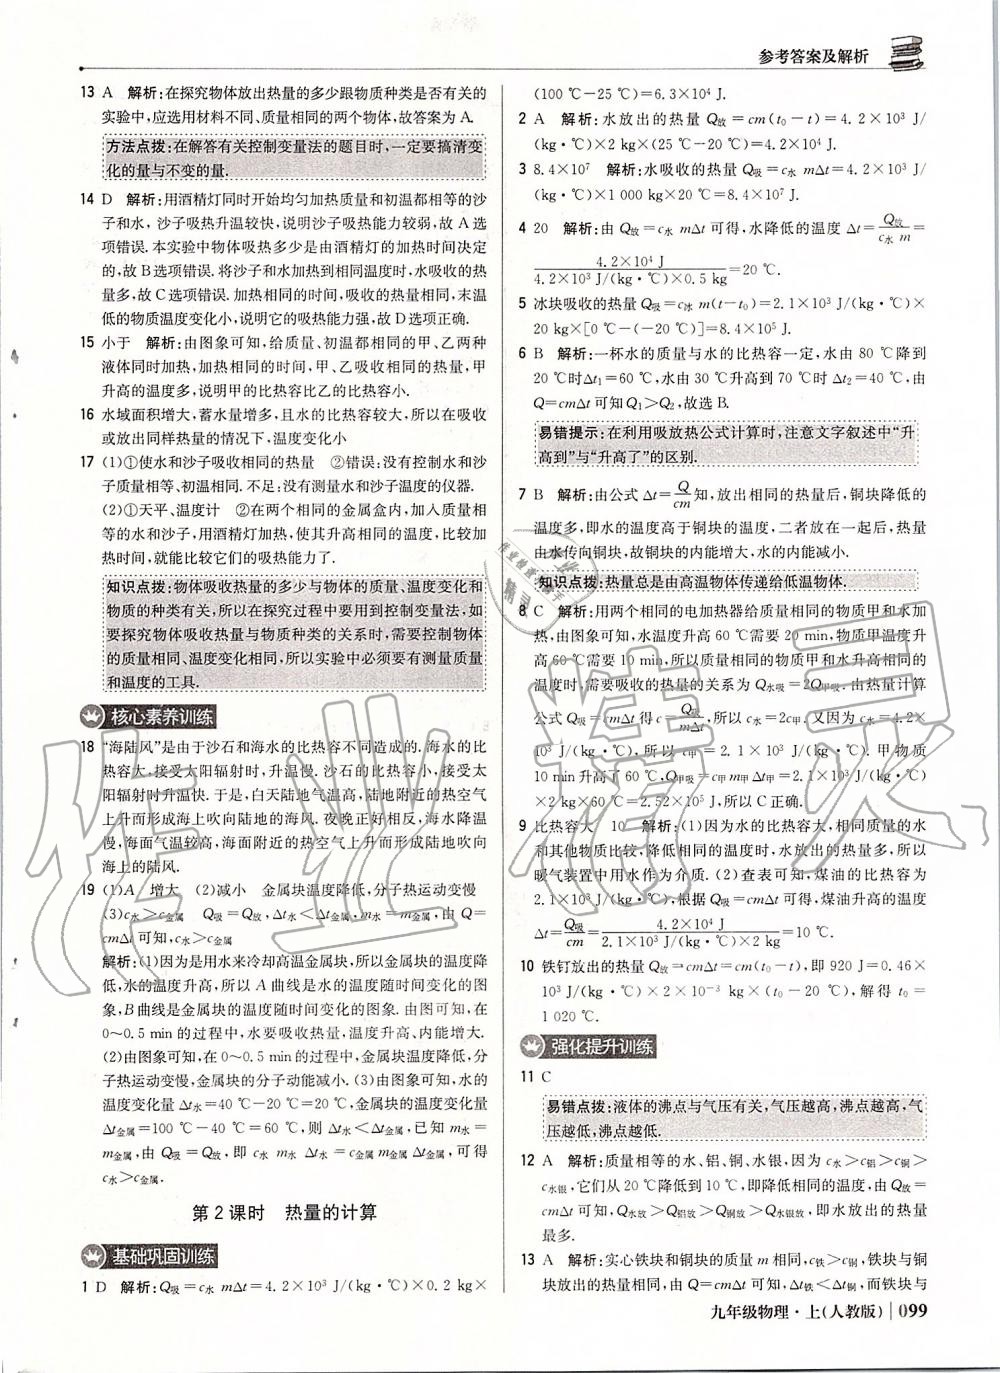 参考答案及解析
13 A 解析:在探究物体放出热量的多少跟物质种类是否有关的
实验中,应选用材料不同、质量相同的两个物体,故答案为 A.
方法点拨:在解答有关控制变量法的题目时,一定要搞清变
化的量与不变的量.
14 D 解析:用酒精灯同时开始均匀加热质量和初温都相等的沙
子和水,沙子吸热升温较快,说明沙子吸热能力较弱,故 A 选
项错误.本实验中物体吸热多少是由酒精灯的加热时间决定
的,故 B 选项错误.将沙子和水加热到相同温度时,水吸收的热
量多,故 C 选项错误.加热相同的时间,吸收的热量相同,末温
低的物质温度变化小,说明它的吸热能力强,故 D 选项正确.
15 小于 解析:由图象可知,给质量、初温都相同的甲、乙两种
液体同时加热,加热相同的时间,甲、乙吸收热量相同时,甲
升高的温度多,说明甲的比热容比乙的比热容小.
16 水域面积增大,蓄水量增多,且水的比热容较大,所以在吸收
或放出同样热量的情况下,温度变化小
17 (1)①使水和沙子吸收相同的热量 ②错误:没有控制水和沙
子质量相等、初温相同.不足:没有测量水和沙子温度的仪器.
(2)①天平、温度计 ②在两个相同的金属盒内,加入质量相
等的水和沙子,用酒精灯加热,使其升高相同的温度,比较加
热时间,就能比较它们的吸热能力了.
知识点拨:物体吸收热量的多少与物体的质量、温度变化和
物质的种类有关,所以在探究过程中要用到控制变量法,如
要探究物体吸收热量与物质种类的关系时,需要控制物体
的质量相同、温度变化相同,所以实验中必须要有测量质量
和温度的工具.
核心素养训练
18 “海陆风”是由于沙石和海水的比热容不同造成的.海水的比
热容大,接受太阳辐射时,升温慢.沙石的比热容小,接受太
阳辐射时升温快.于是,白天陆地气温高,陆地附近的热空气
上升而形成海上吹向陆地的海风.夜晚正好相反,海水降温
慢,海面气温较高,海面附近的热空气上升而形成陆地吹向
海上的陆风.
19 (1)A 增大 (2)减小 金属块温度降低,分子热运动变慢
(3)c水>c金属 Q吸=Q放,Δt水<Δt金属,m水=m金属,由 Q=
cmΔt 可知,c水>c金属
解析:(1)因为是用水来冷却高温金属块,所以金属块的温度降
低,水的温度升高,所以 A 曲线是水的温度随时间变化的图
象,B 曲线是金属块的温度随时间变化的图象.由图可知,在
0~0.5 min 的过程中,水要吸收热量,温度升高、内能增大.
(2)由图象可知,在 0~0.5 min 的过程中,金属块温度降低,分
子热运动变慢,金属块的分子动能减小.(3)由图象可知,水的
温度变化量 Δt水=40 ℃-20 ℃=20 ℃,金属块的温度变化量
Δt金属=100 ℃-40 ℃=60 ℃,则 Δt水<Δt金属,已知 m水=
m金属,由 Q吸=Q放,即 c水 m水 Δt水=c金属 m金属 Δt金属,可得
c水>c金属.
第 2 课时 热量的计算
基础巩固训练
1 D 解析:Q吸=c水 mΔt=4.2×10³ J/(kg·℃)×0.2 kg×
(100 ℃-25 ℃)=6.3×10⁴ J.
2 A 解析:水放出的热量 Q放=cm(t₀-t)=4.2×10³ J/
(kg·℃)×2 kg×(25 ℃-20 ℃)=4.2×10⁴ J.
3 8.4×10⁷ 解析:水吸收的热量 Q吸=c水 mΔt=4.2×10³ J/
(kg·℃)×1 000 kg×20 ℃=8.4×10⁷ J.
4 20 解析:由 Q放=c水 mΔt 可得,水降低的温度 Δt=Q放/c水 m=
4.2×10⁴ J/4.2×10³ J/(kg·℃)×0.5 kg=20 ℃.
5 冰块吸收的热量 Q吸=c冰 m(t-t₀)=2.1×10³ J/(kg·℃)×
20 kg×[0 ℃-(-20 ℃)]=8.4×10⁵ J.
6 B 解析:一杯水的质量与水的比热容一定,水由 80 ℃降到
20 ℃时Δt₁=60 ℃,水由 30 ℃升高到 70 ℃时 Δt₂=40 ℃,由
Q=cmΔt 可知 Q₁>Q₂,故选 B.
易错提示:在利用吸放热公式计算时,注意文字叙述中“升
高到”与“升高了”的区别.
7 B 解析:由公式 Δt=Q/cm知,放出相同的热量后,铜块降低的
温度多,即水的温度高于铜块的温度,二者放在一起后,热量
由水传向铜块,故铜块的内能增大,水的内能减小.
知识点拨:热量总是由高温物体传递给低温物体.
8 C 解析:用两个相同的电加热器给质量相同的物质甲和水加
热,由图象可知,水温度升高 60 ℃需要 20 min,物质甲温度升
高 60 ℃需要 10 min,所以质量相同的物质甲和水升高相同的
温度时,需要吸收的热量的关系为 Q水吸=2Q甲吸.由热量计算
公式 Q吸=cmΔt得 c=Q吸/mΔt,所以 c水=2c甲.又因为 c水=4.2×
10³ J/(kg·℃),所以 c甲=2.1×10³ J/(kg·℃).甲物质
10 min升高了 60 ℃,Q甲吸=c甲 m甲 Δt甲=2.1×10³ J/(kg·℃)
×2 kg×60 ℃=2.52×10⁵ J,所以 C 正确.
9 比热容大 10 解析:(1)因为水的比热容大,相同质量的水
和其他物质比较,降低相同的温度时,水放出的热量多,所以
暖气装置中用水作为介质.(2)查表可知,煤油的比热容为
2.1×10³ J/(kg·℃),根据 Q吸=cmΔt 可得,煤油升高的温度
Δt=Q吸/cm=4.2×10⁴ J/2.1×10³ J/(kg·℃)×2 kg=10 ℃.
10 铁钉放出的热量 Q放=cmΔt=cm(t₀-t),即 920 J=0.46×
10³ J/(kg·℃)×2×10⁻³ kg×(t₀-20 ℃),解得 t₀=
1 020 ℃.
强化提升训练
11 C
易错点拨:液体的沸点与气压有关,气压越高,沸点越高,气
压越低,沸点越低.
12 A 解析:质量相等的水、铝、铜、水银,因为 c水>c铝>c铜>
c水银,它们从 20 ℃降低到 10 ℃,即降低相同的温度,由 Q放=
cmΔt 可知,Q水放>Q铝放>Q铜放>Q水银放,即水放出的热量
最多.
13 A 解析:实心铁块和铜块的质量 m 相同,c铁>c铜,铁块与铜
块放出的热量相同,由 Q=cmΔt 可知,Δt铁<Δt铜,而铁块与
九年级物理·上(人教版) 099
作业精灵